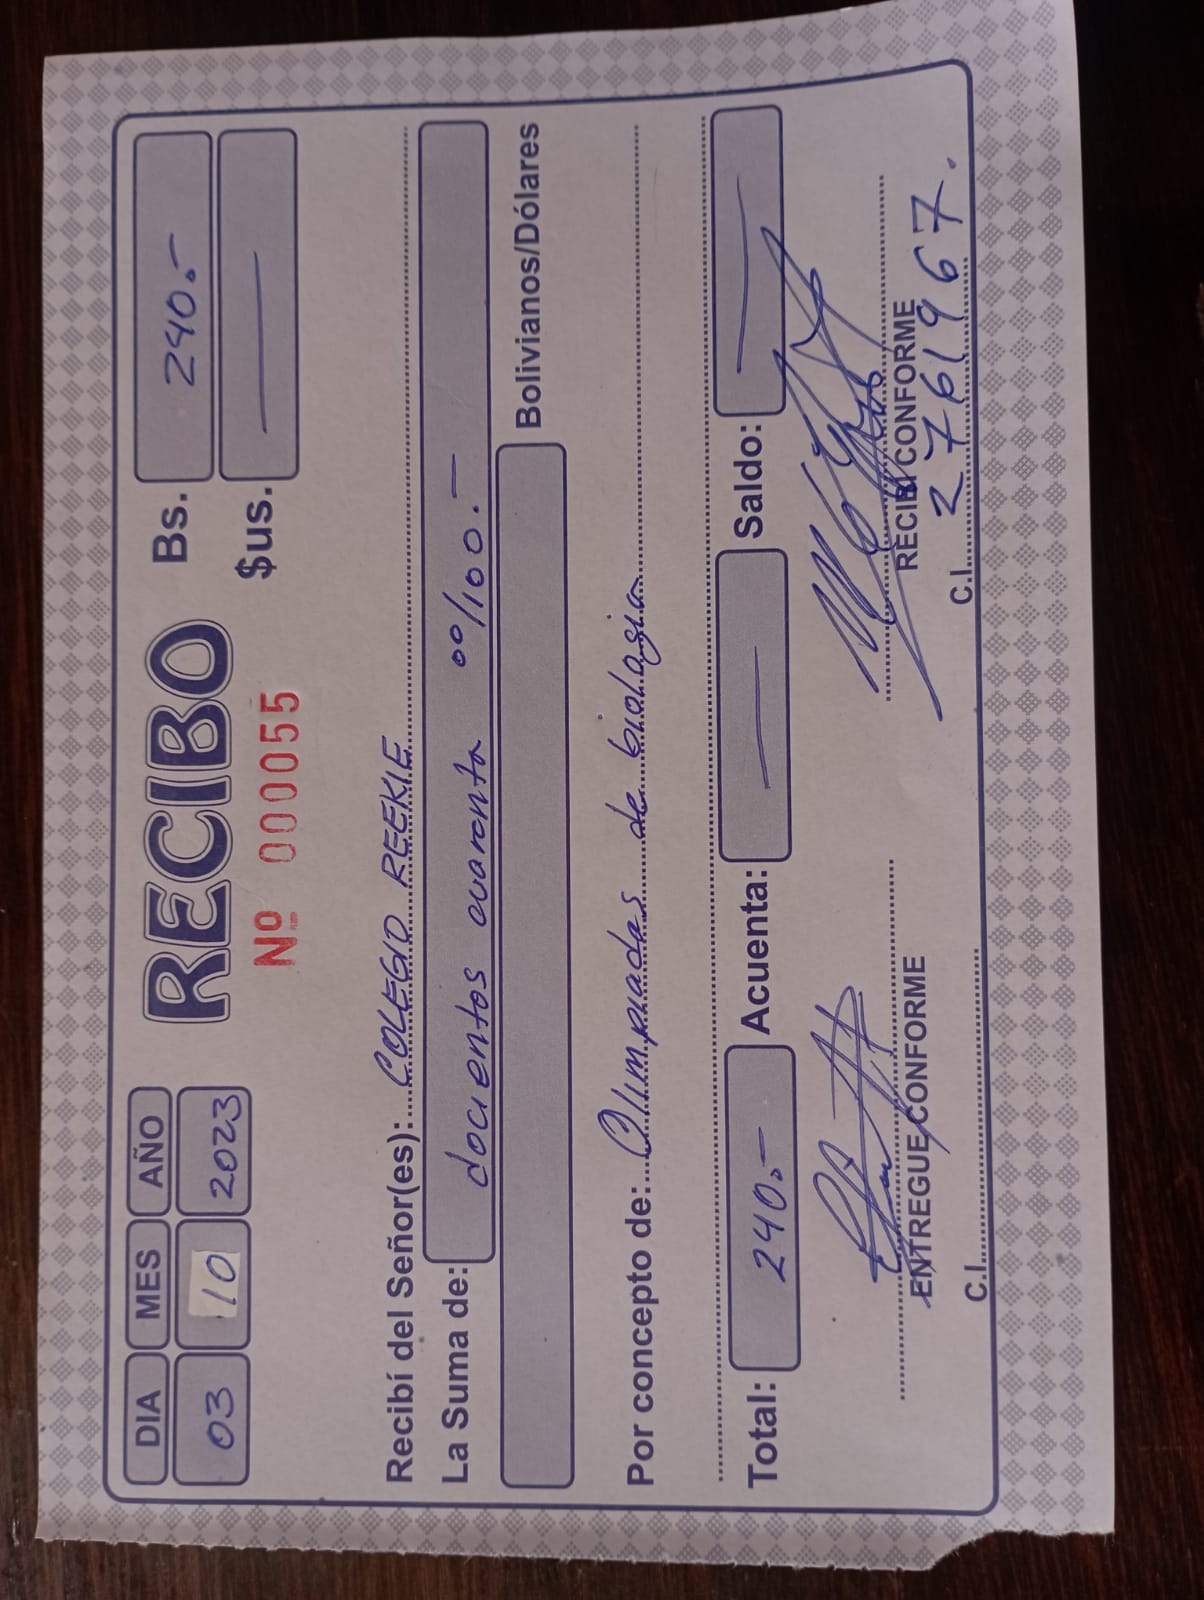 DIA MES AÑO RECIBO Bs. 240.-
03 10 2023 Nº 000055 $us. —
Recibí del Señor(es): COLEGIO REEKIE
La Suma de: docientos cuarenta 00/100.-
Bolivianos/Dólares
Por concepto de: Olimpiadas de biologia
Total: 240.- Acuenta: — Saldo: —
ENTREGUE CONFORME RECIBI CONFORME
C.I. C.I. 2761967.